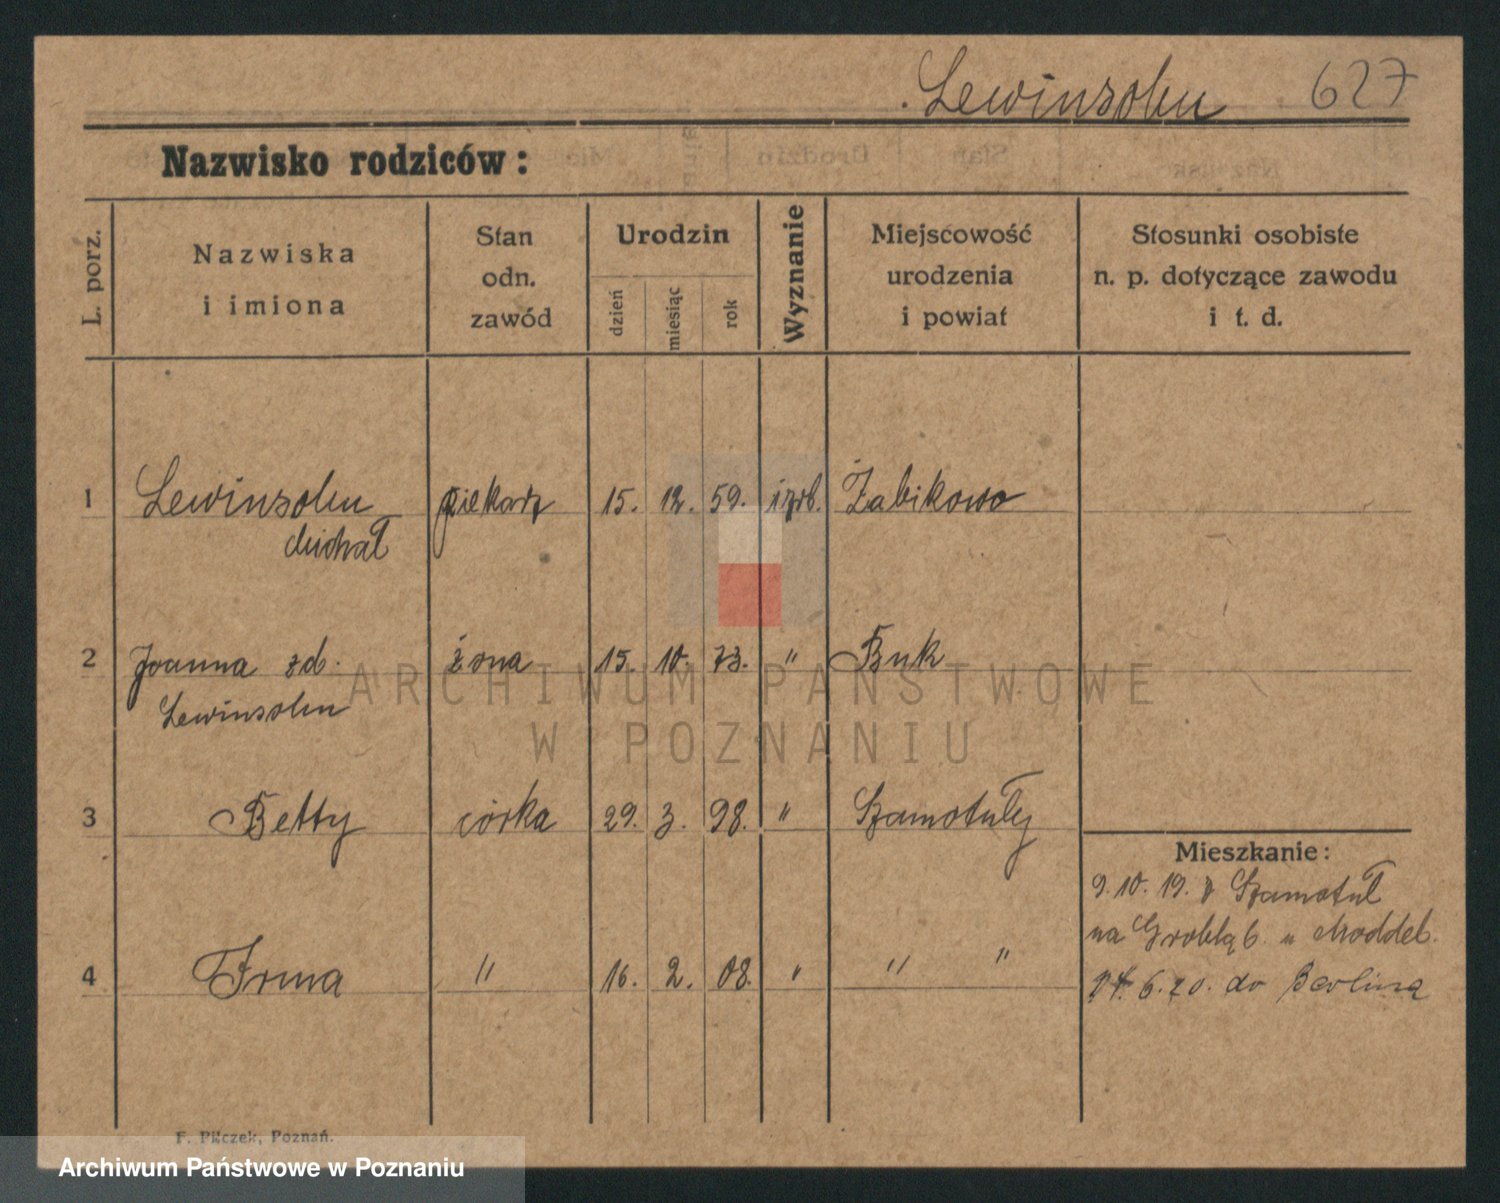 Lewinsohn 627
Nazwisko rodziców:
L. porz.
Nazwiska
i imiona
Stan
odn.
zawód
Urodzin
dzień
miesiąc
rok
Wyznanie
Miejscowość
urodzenia
i powiat
Stosunki osobiste
n. p. dotyczące zawodu
i t. d.
1 Lewinsohn piekarz 15. 12. 59. izrb. Żabikowo
Michał
2 Joanna zd. żona 15. 10. 73. " Buk
Lewinsohn
3 Betty córka 29. 3. 98. " Szamotuły
Mieszkanie:
9. 10. 19. z Szamotuł
na Groblą 6. u
4 Irma " 16. 2. 08. " " "
6. 20. do Berlina
F. Pilczek, Poznań.
ARCHIWUM PAŃSTWOWE
W POZNANIU
Archiwum Państwowe w Poznaniu